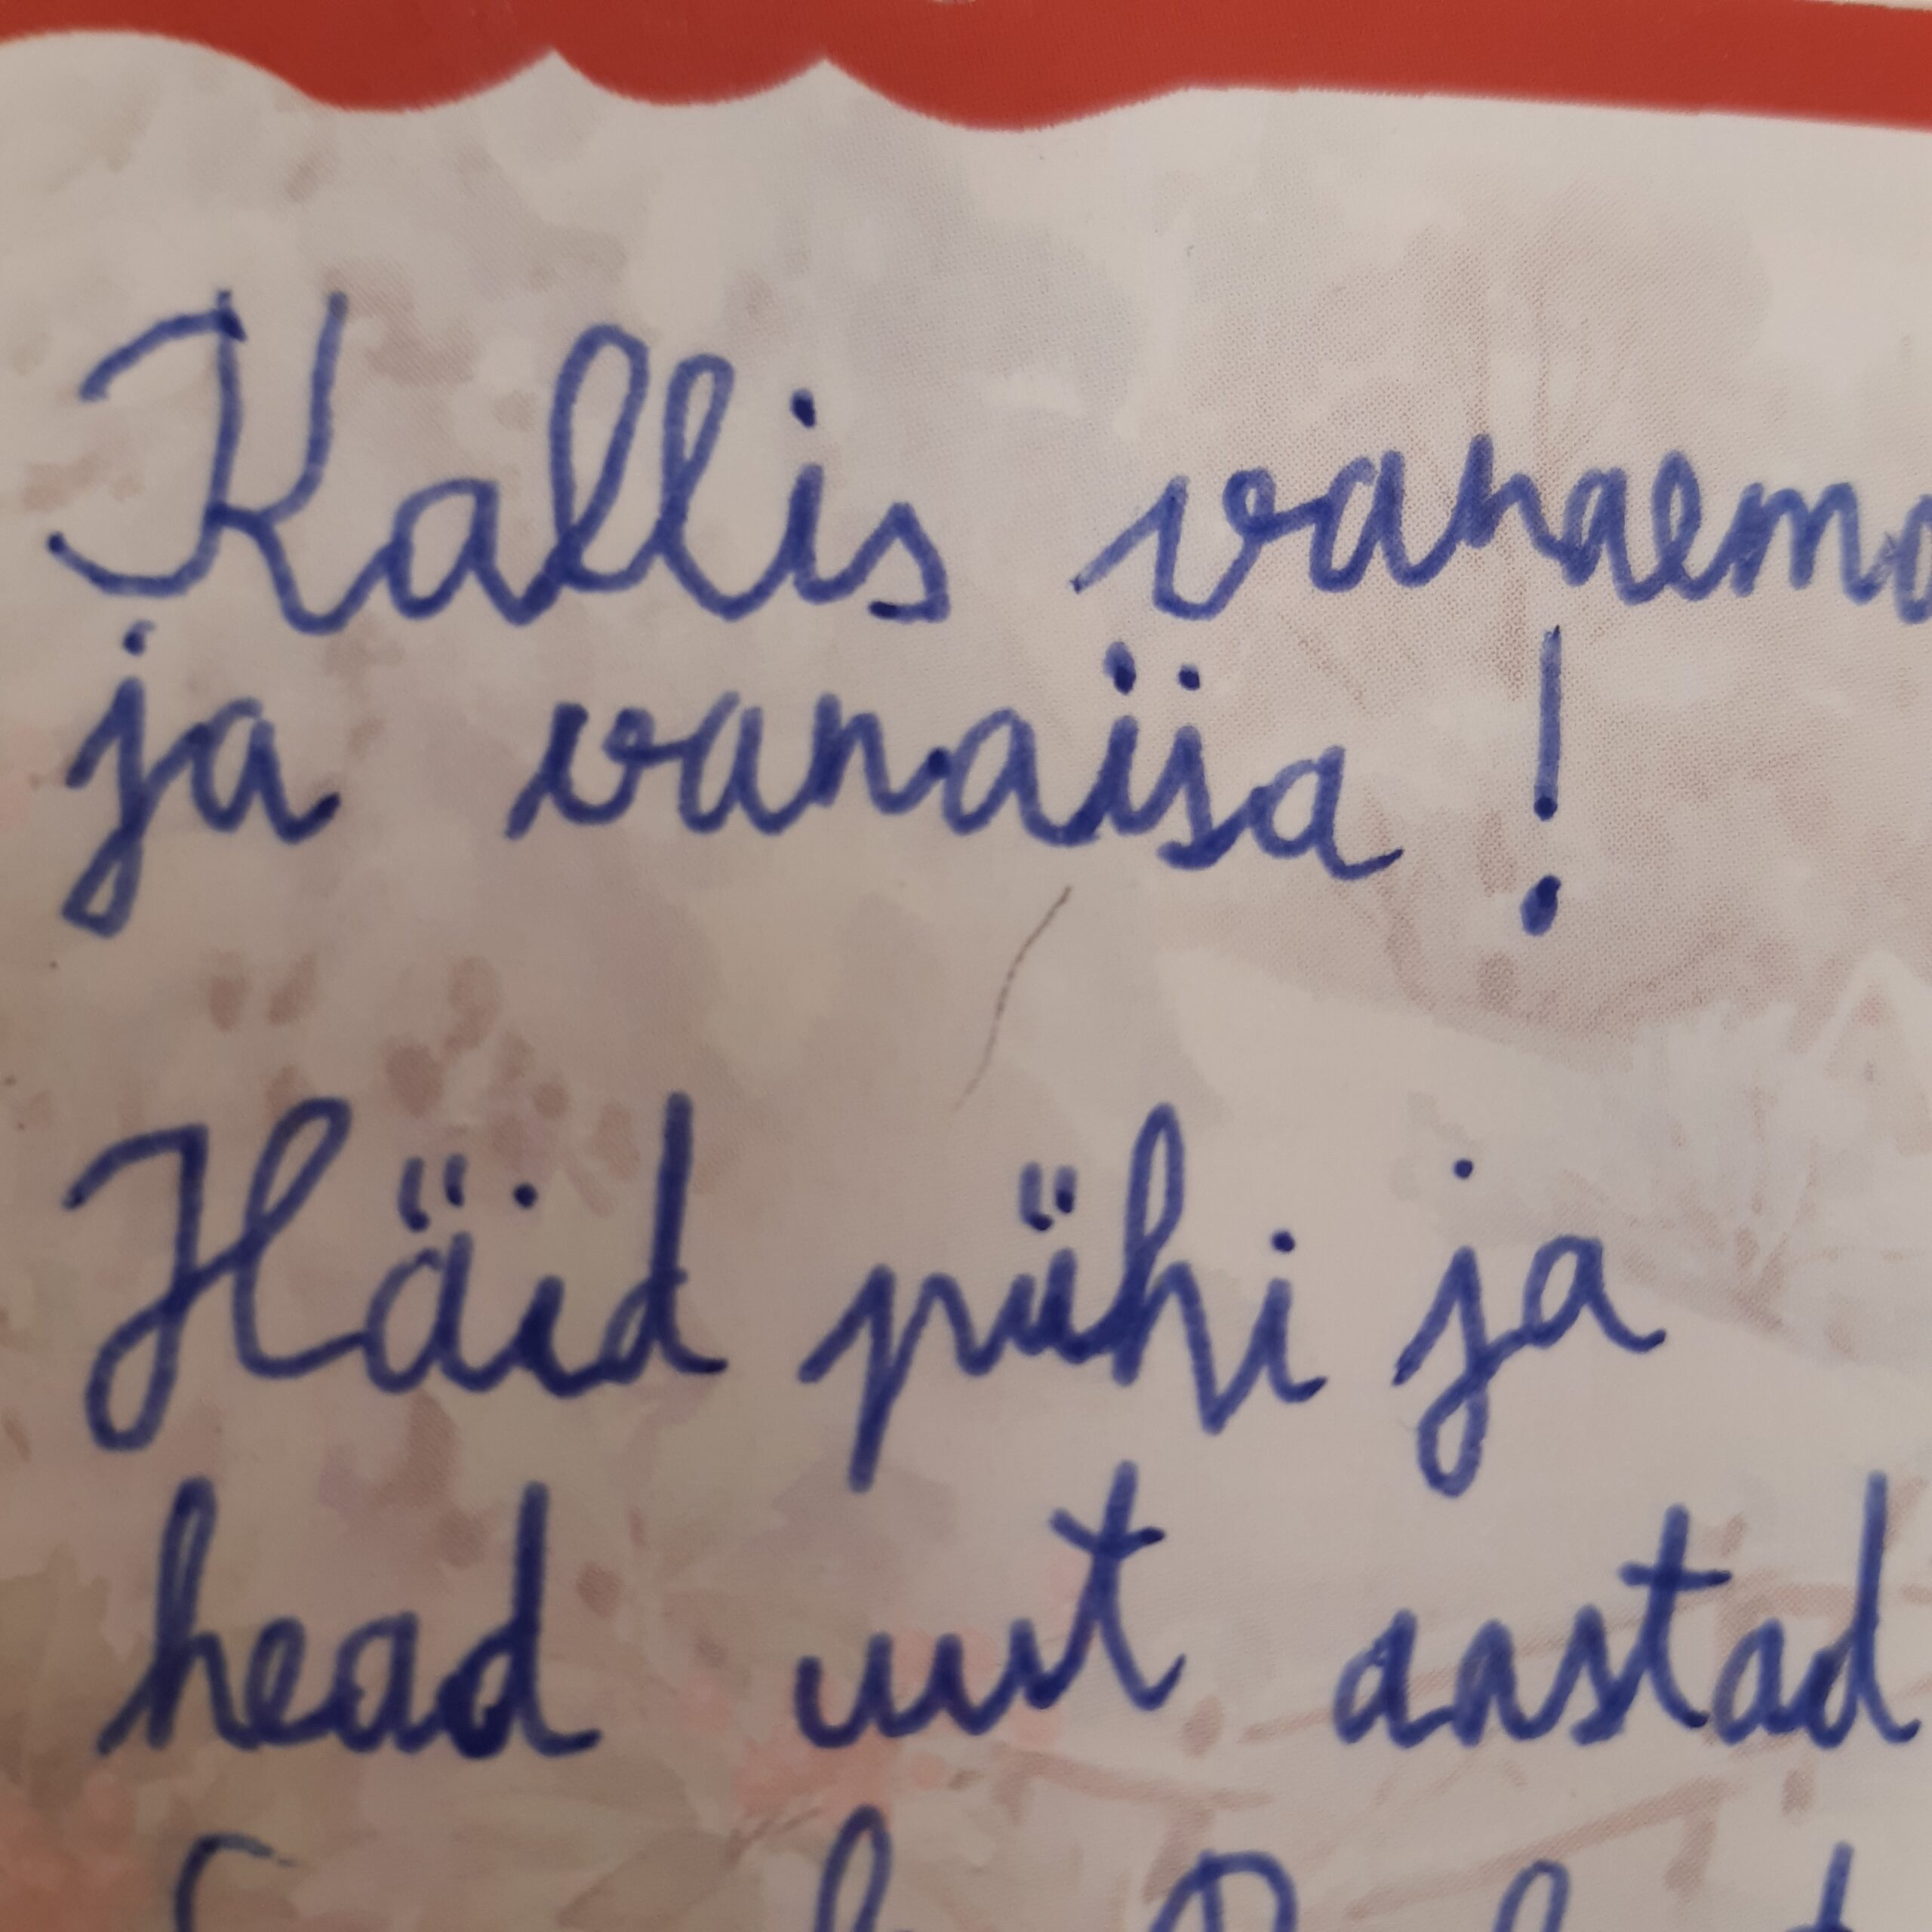 Kallis vanaema
ja vanaisa!
Häid pühi ja
head uut aastad